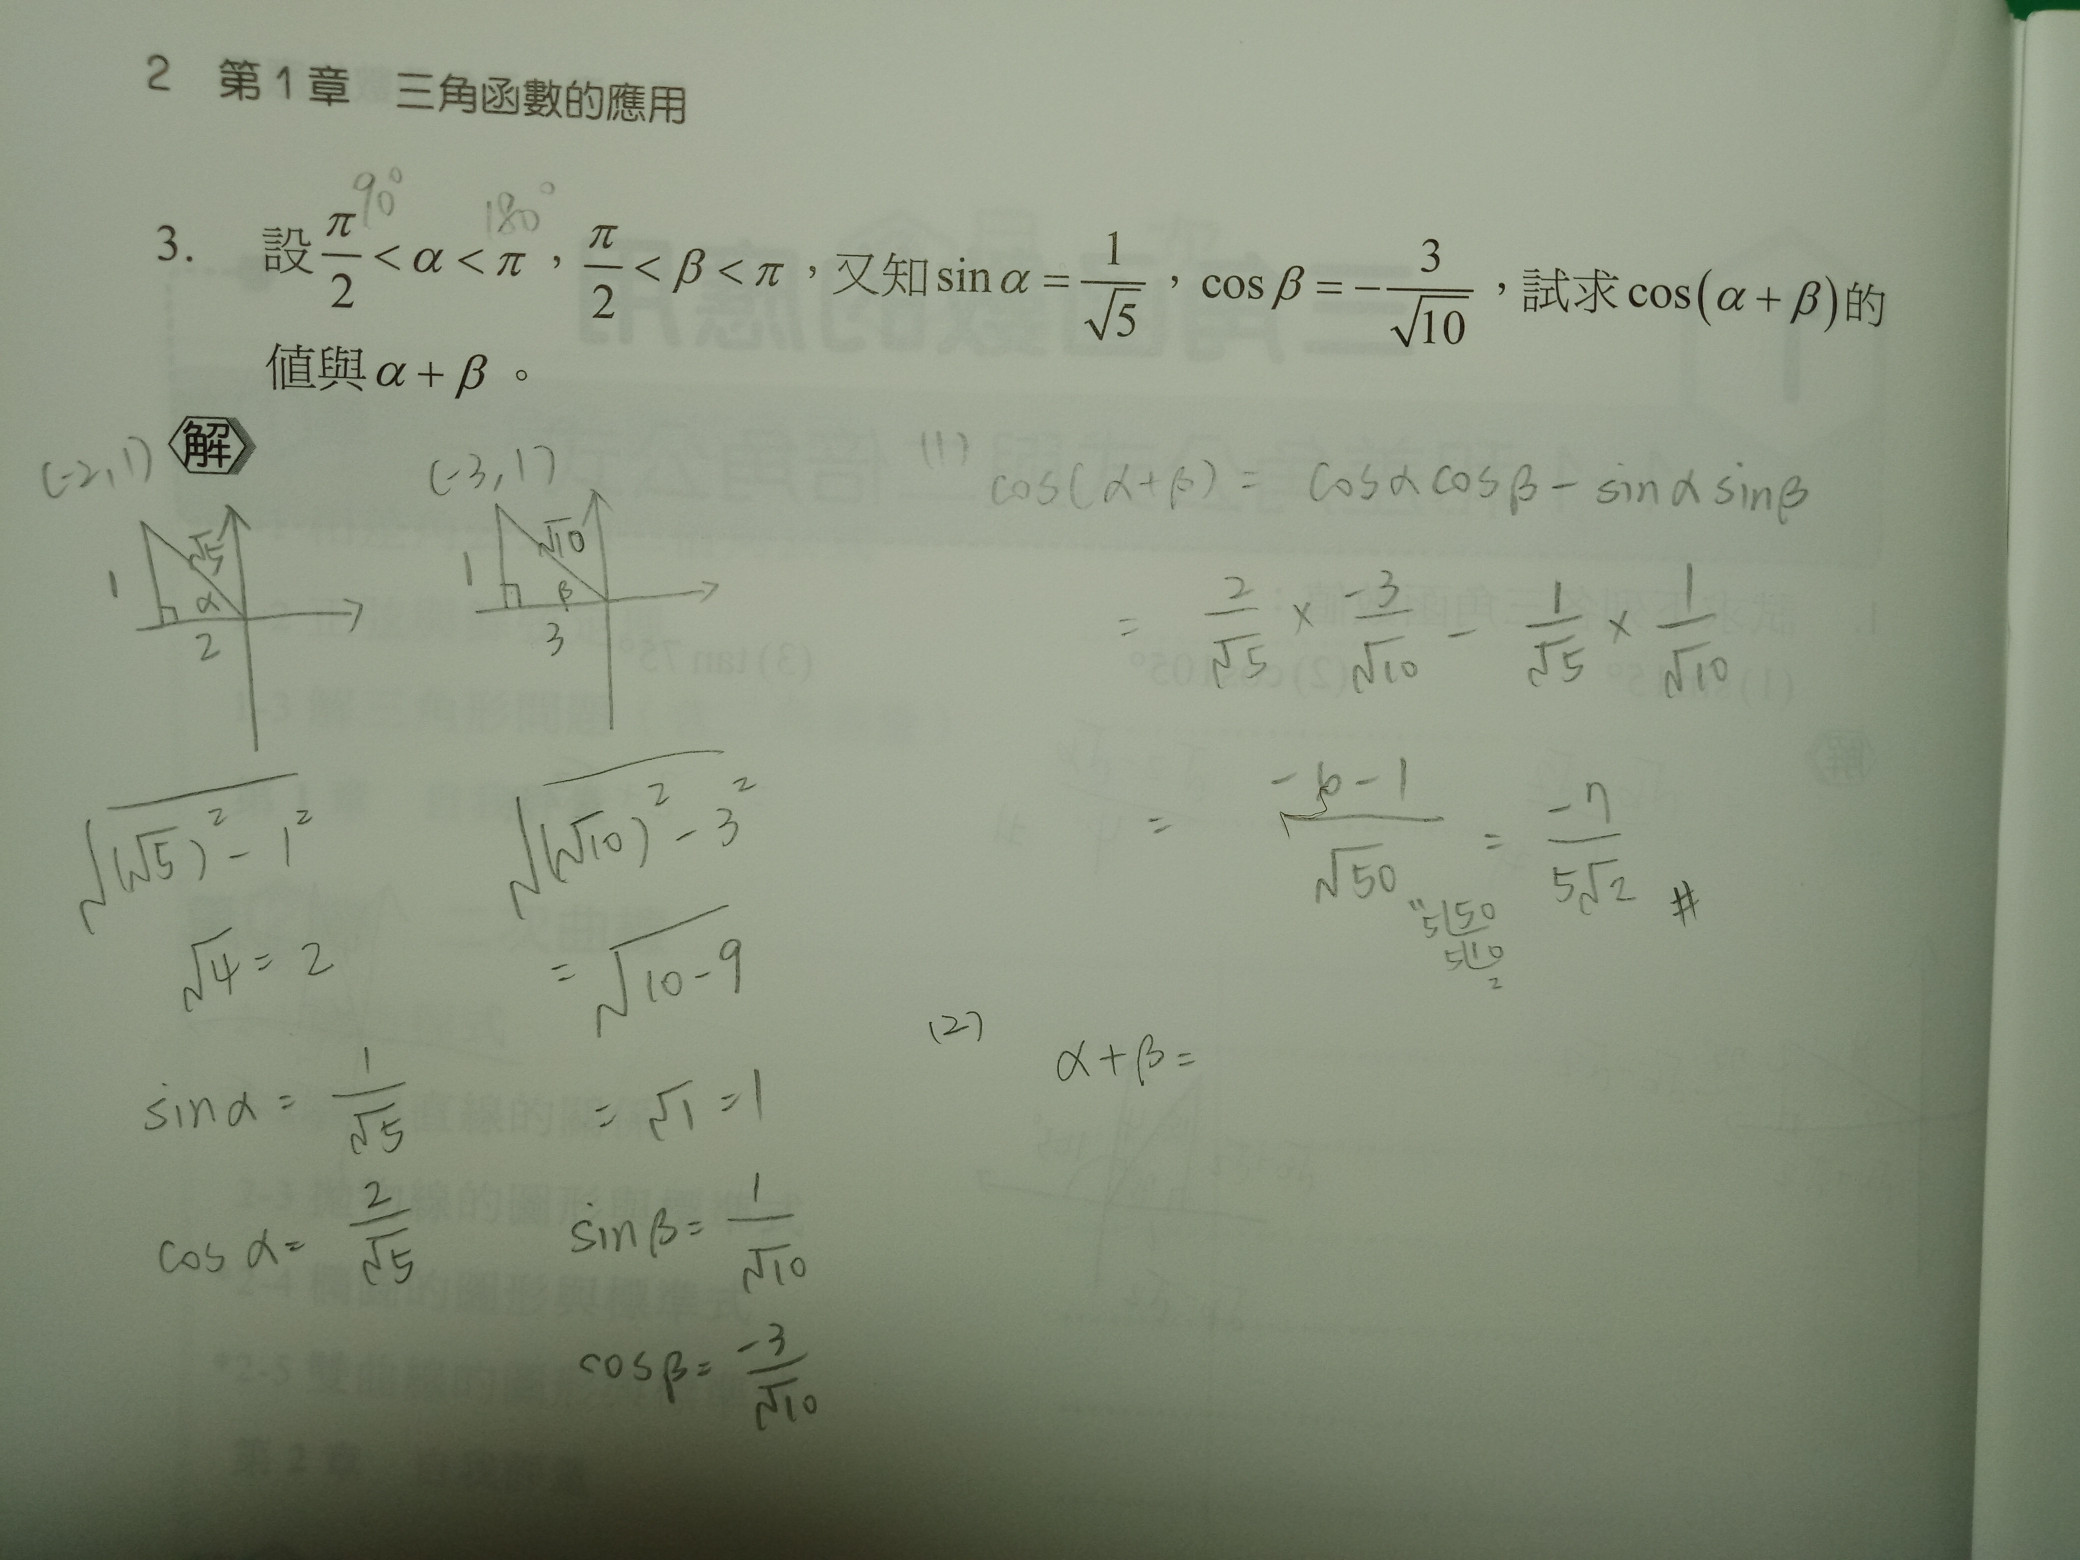 2 第1章 三角函數的應用
90° 180°
3. 設 π/2 < α < π，π/2 < β < π，又知 sin α = 1/√5，cos β = -3/√10，試求 cos(α + β) 的
值與 α + β。
解
(-2,1)
√5
1
α
2
(-3,1)
√10
1
β
3
√((√5)² - 1²)
√4 = 2
sin α = 1/√5
cos α = 2/√5
√((√10)² - 3²)
= √(10-9)
= √1 = 1
sin β = 1/√10
cos β = -3/√10
(1) cos(α+β) = cos α cos β - sin α sin β
= 2/√5 × -3/√10 - 1/√5 × 1/√10
= (-6-1)/√50 = -7/(5√2) #
5|50
5|10
2
(2) α + β =